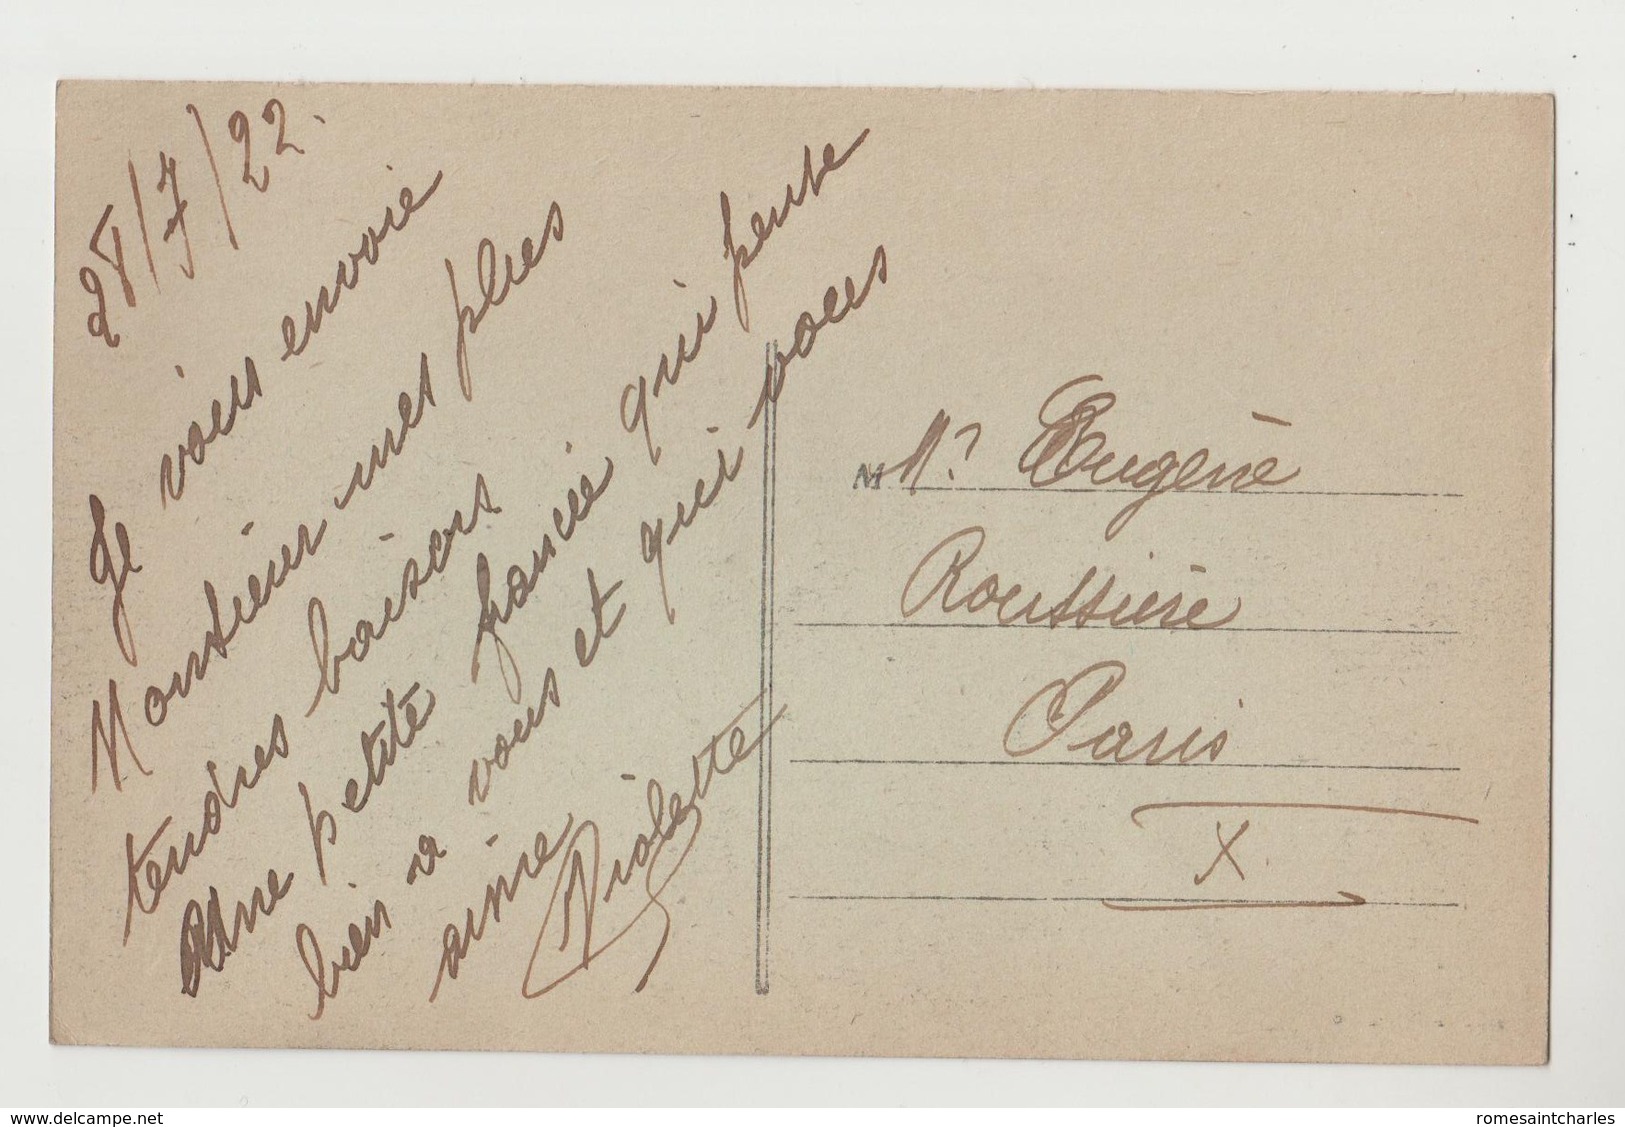 28/7/22.
Je vous envoie
Monsieur mes plus
tendres baisers
Une petite fiancée qui pense
bien a vous et qui vous
aime
Violette
M Mr Eugène
Roussière
Paris
X.
www.delcampe.net
romesaintcharles